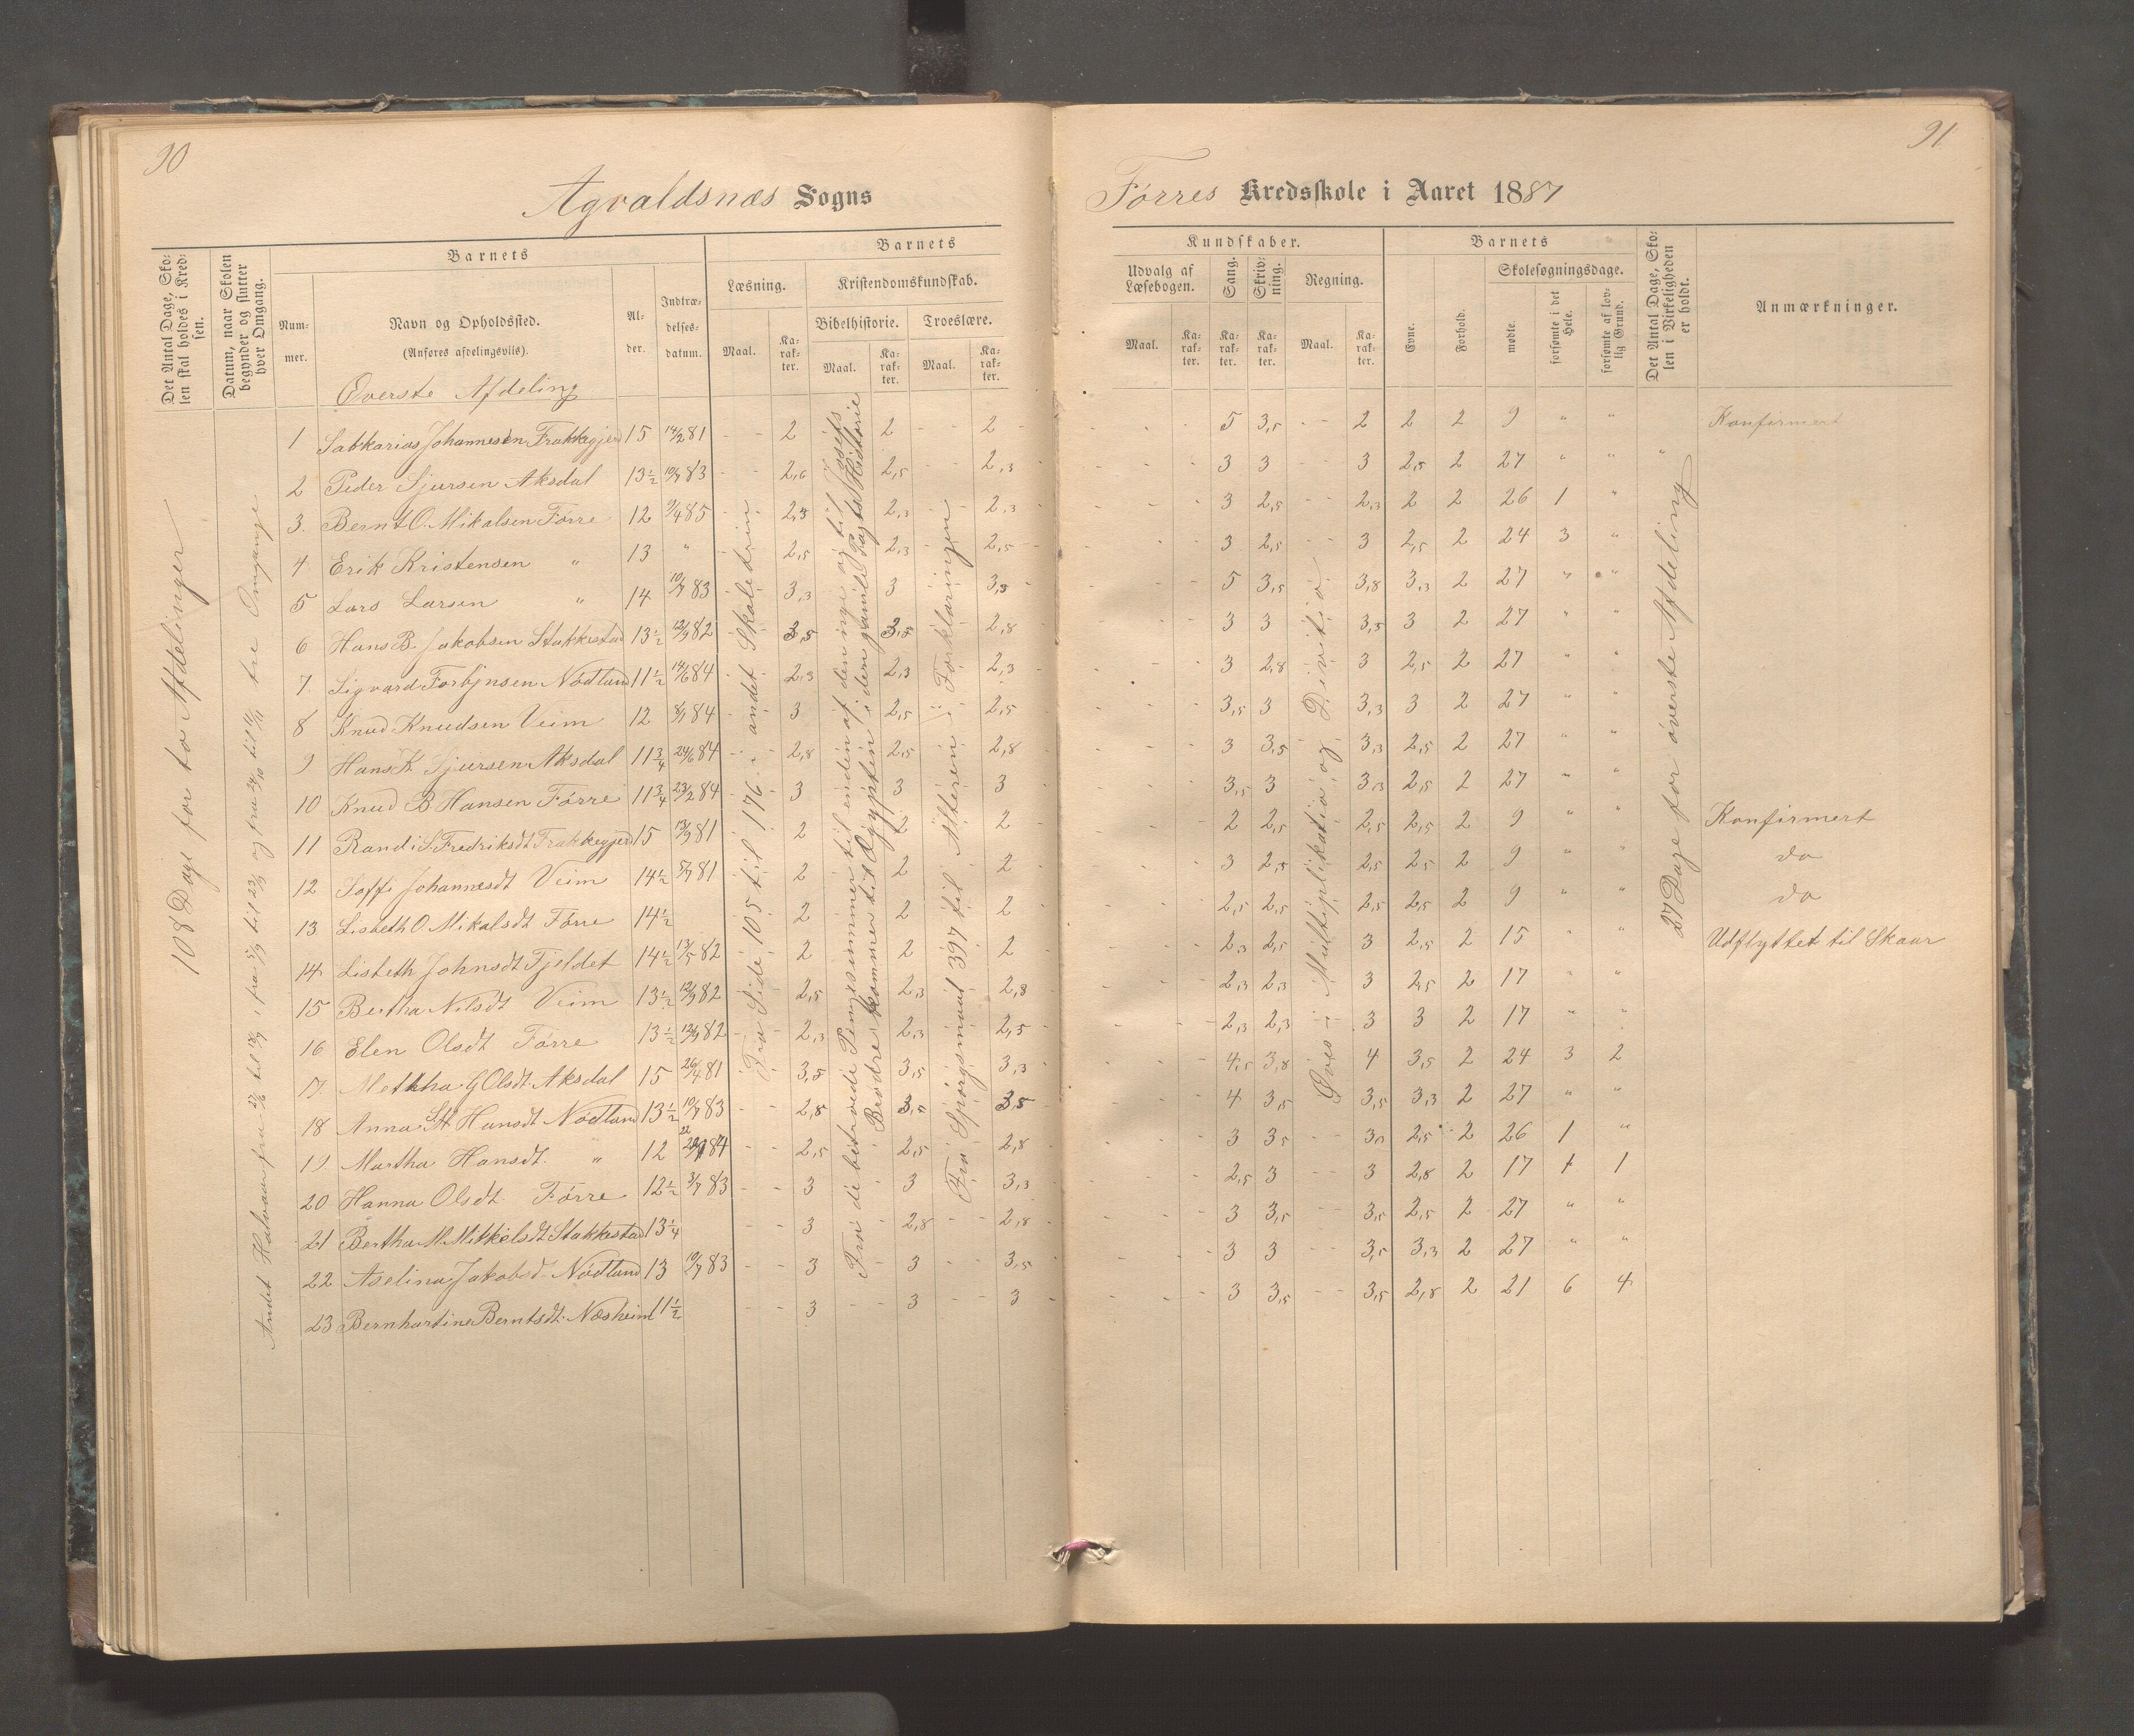 90
Agvaldsnæs Sogns
Det Antal Dage, Sko-
len skal holdes i Kred-
sen.
Datum, naar Skolen
begynder og slutter
hver Omgang.
Barnets
Num-
mer.
Navn og Opholdssted.
(Anføres afdelingsviis).
Al-
der.
Indtræ-
delses-
datum.
Barnets
Læsning.
Kristendomskundskab.
Bibelhistorie. Troeslære.
Maal.
Ka-
rak-
ter.
Maal.
Ka-
rak-
ter.
Maal.
Ka-
rak-
ter.
Øverste Afdeling
108 Dage for to Afdelinger
Andet Halvaar fra 27/6 til 18/7, fra 5/9 til 23/9 og fra 24/10 til 11/11 tre Omgange
Fra Side 105 til 176 i andet Skoletrin
Fra de betroede Penge summer til enden af den nye og til Josefs
Brødre kommer til Ægypten i den gamle Pagts Historie
Fra Spørgsmaal 397 til Alteren i Forklaringen
1 Sakkarias Johannesen Frakkegjerd 15 14/2 81 2 2 2
2 Peder Sjursen Aksdal 13½ 10/7 83 2,6 2,5 2,3
3. Bernt O. Mikalsen Førre 12 9/4 85 2,3 2,3 2,3
4 Erik Kristensen " 13 " 2,5 2,3 2,5
5 Lars Larsen " 14 10/7 83 3,3 3 3,3
6 Hans B. Jakobsen Stakkestad 13½ 12/9 82 3,5 3,3 2,8
7. Sigvard Torbjnsen Nødland 11½ 14/6 84 2,3 2,3 2,3
8 Knud Knudsen Veim 12 8/1 84 3 2,5 2,5
9 Hans K. Sjursen Aksdal 11¾ 24/6 84 2,8 2,5 2,8
10 Knud B Hansen Førre 11¾ 23/2 84 3 3 3
11 Randi S. Fredriksdt Frakkegjerd 15 13/9 81 2 2 2
12 Soffi Johannesdt Veim 14½ 5/7 81 2 2 2
13 Lisbeth O. Mikalsdt Førre 14½ 2 2 2
14 Lisbeth Johnsdt Fjeldet 14½ 13/5 82 2 2 2
15 Bertha Nilsdt Veim 13½ 12/9 82 2,5 2,3 2,8
16 Elen Olsdt Førre 13½ 12/9 82 2,3 2,3 2,5
17 Metkha G Olsdt Aksdal 15 26/4 81 3,5 3,5 3,3
18 Anna St Hansdt Nødland 13½ 10/7 83 2,8 3,0 3,5
19 Martha Hansdt " 12 84 2,5 2,5 2,8
20 Hanna Olsdt Førre 12½ 3/7 83 3 3 3,3
21 Bertha M. Mikkelsdt Stakkestad 13¼ 3 2,8 2,8
22 Aselina Jakobsd. Nødland 13 10/7 83 3 3 3,5
23 Bernhartine Berntsdt Næsheim 11½ 3 3 3
91
Førres Kredsskole i Aaret 1887
Kundskaber.
Udvalg af
Læsebogen.
Sang.
Skriv-
ning.
Regning.
Maal.
Ka-
rak-
ter.
Ka-
rak-
ter.
Ka-
rak-
ter.
Maal.
Ka-
rak-
ter.
Barnets
Evne.
Forhold.
Skolesøgningsdage.
mødte.
forsømte i det
Hele.
forsømte af lov-
lig Grund.
Det Antal Dage, Sko-
len i Virkeligheden
er holdt.
Anmærkninger.
Øves i Multiplikation og Division
27 Dage for øverste Afdeling
5 3,5 2 2 2 9 " " Konfirmert
3 3 3 2,5 2 27 " " "
3 2,5 2,3 2 2 26 1 "
3 2,5 3 2,5 2 24 3 "
5 3,5 3,8 3,3 2 27 " "
3 3 3,5 3 2 27 " "
3 2,8 3 2,5 2 27 " "
3,5 3 3,3 3 2 27 " "
3 3,5 3,3 2,5 2 27 " "
3,5 3 3,3 2,5 2 27 " "
2 2,5 2,5 2,5 2 9 " " Konfirmert
3 2,5 2,5 2,5 2 9 " " do
2,5 2,5 2,5 2,5 2 9 " " do
2,3 2,5 3 2,5 2 15 " " Udflyttet til Skaar
2,3 2,3 3 2,5 2 17 " "
2,3 2,3 3 3 2 17 " "
4,5 3,8 4 3,5 2 24 3 2
4 3,5 3,5 3,3 2 27 " "
3 3,5 3,3 2,5 2 26 1 "
2,5 3 3 2,8 2 17 1 1
3 3,5 3,5 2,5 2 27 " "
3 3 3,5 3,3 2 27 " "
3 3,5 3,5 2,8 2 21 6 4